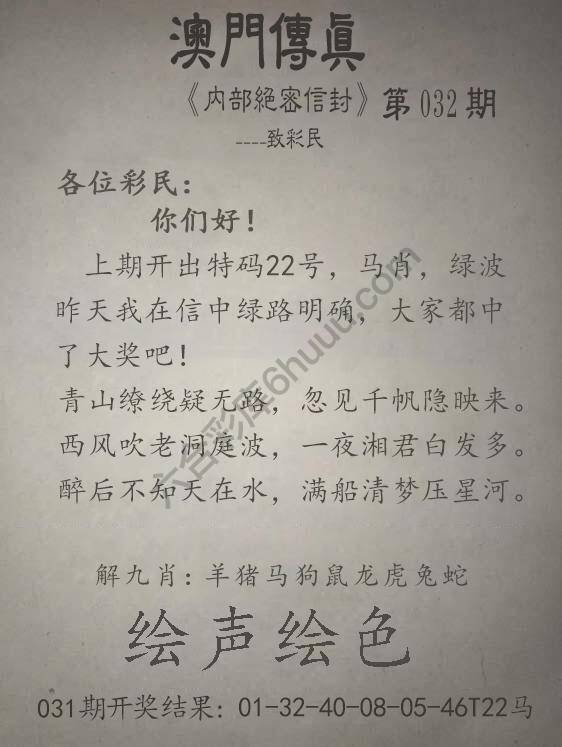 澳門傳眞
《内部絕密信封》第032期
----致彩民
各位彩民：
你们好！
上期开出特码22号，马肖，绿波
昨天我在信中绿路明确，大家都中
了大奖吧！
青山缭绕疑无路，忽见千帆隐映来。
西风吹老洞庭波，一夜湘君白发多。
醉后不知天在水，满船清梦压星河。
解九肖：羊猪马狗鼠龙虎兔蛇
绘声绘色
031期开奖结果：01-32-40-08-05-46T22马
六合彩库6huuu.com